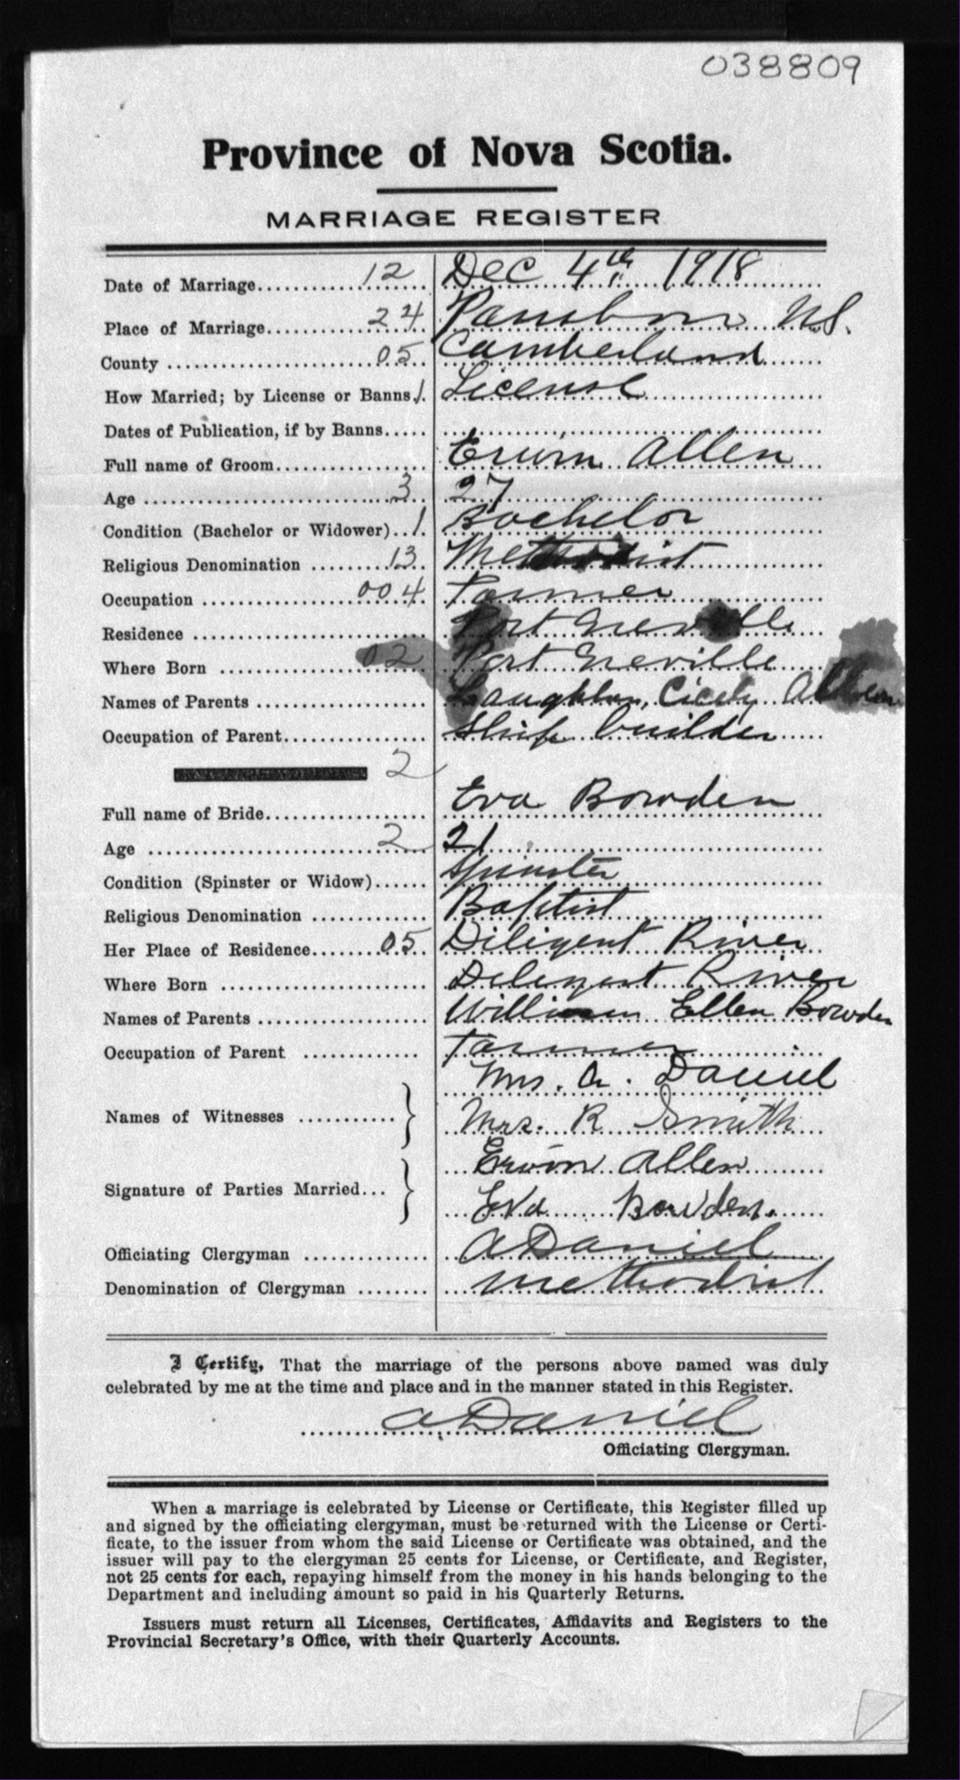 038809
Province of Nova Scotia.
MARRIAGE REGISTER
Date of Marriage 12 Dec 4th 1918
Place of Marriage 24 N.S.
County 05 Cumberland
How Married; by License or Banns 1 License
Dates of Publication, if by Banns
Full name of Groom Erwin Allen
Age 3 27
Condition (Bachelor or Widower) 1 Bachelor
Religious Denomination 13 Methodist
Occupation 004 Farmer
Residence Port Greville
Where Born 02 Port Greville
Names of Parents Laughlin, Cicely Allen
Occupation of Parent Ship builder
2
Full name of Bride Eva Bowden
Age 2 21
Condition (Spinster or Widow) Spinster
Religious Denomination Baptist
Her Place of Residence 05 Diligent River
Where Born Diligent River
Names of Parents William Ellen Bowden
Occupation of Parent Farmer
Mrs. A. Daniel
Names of Witnesses } Mrs. R Smith
Erwin Allen
Signature of Parties Married... }
Eva Bowden.
Officiating Clergyman A Daniel
Denomination of Clergyman Methodist
I Certify, That the marriage of the persons above named was duly
celebrated by me at the time and place and in the manner stated in this Register.
A Daniel
Officiating Clergyman.
When a marriage is celebrated by License or Certificate, this Register filled up
and signed by the officiating clergyman, must be returned with the License or Certi-
ficate, to the issuer from whom the said License or Certificate was obtained, and the
issuer will pay to the clergyman 25 cents for License, or Certificate, and Register,
not 25 cents for each, repaying himself from the money in his hands belonging to the
Department and including amount so paid in his Quarterly Returns.
Issuers must return all Licenses, Certificates, Affidavits and Registers to the
Provincial Secretary's Office, with their Quarterly Accounts.